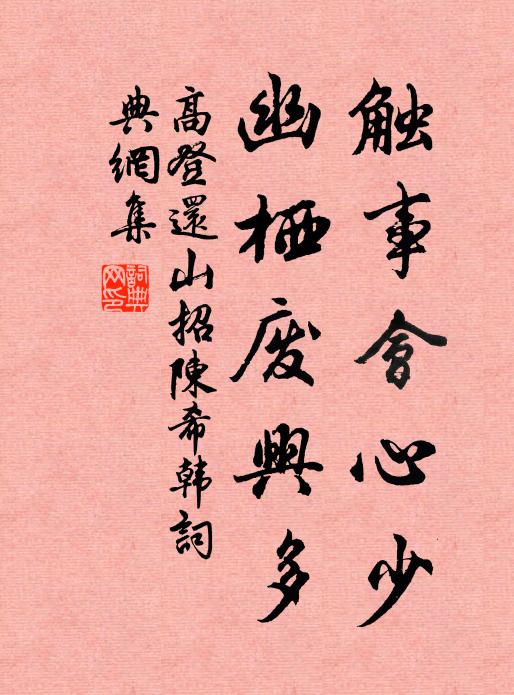 触事會心少
幽栖废興多
高登還山招陳希韩詞
典網集
詞典网印